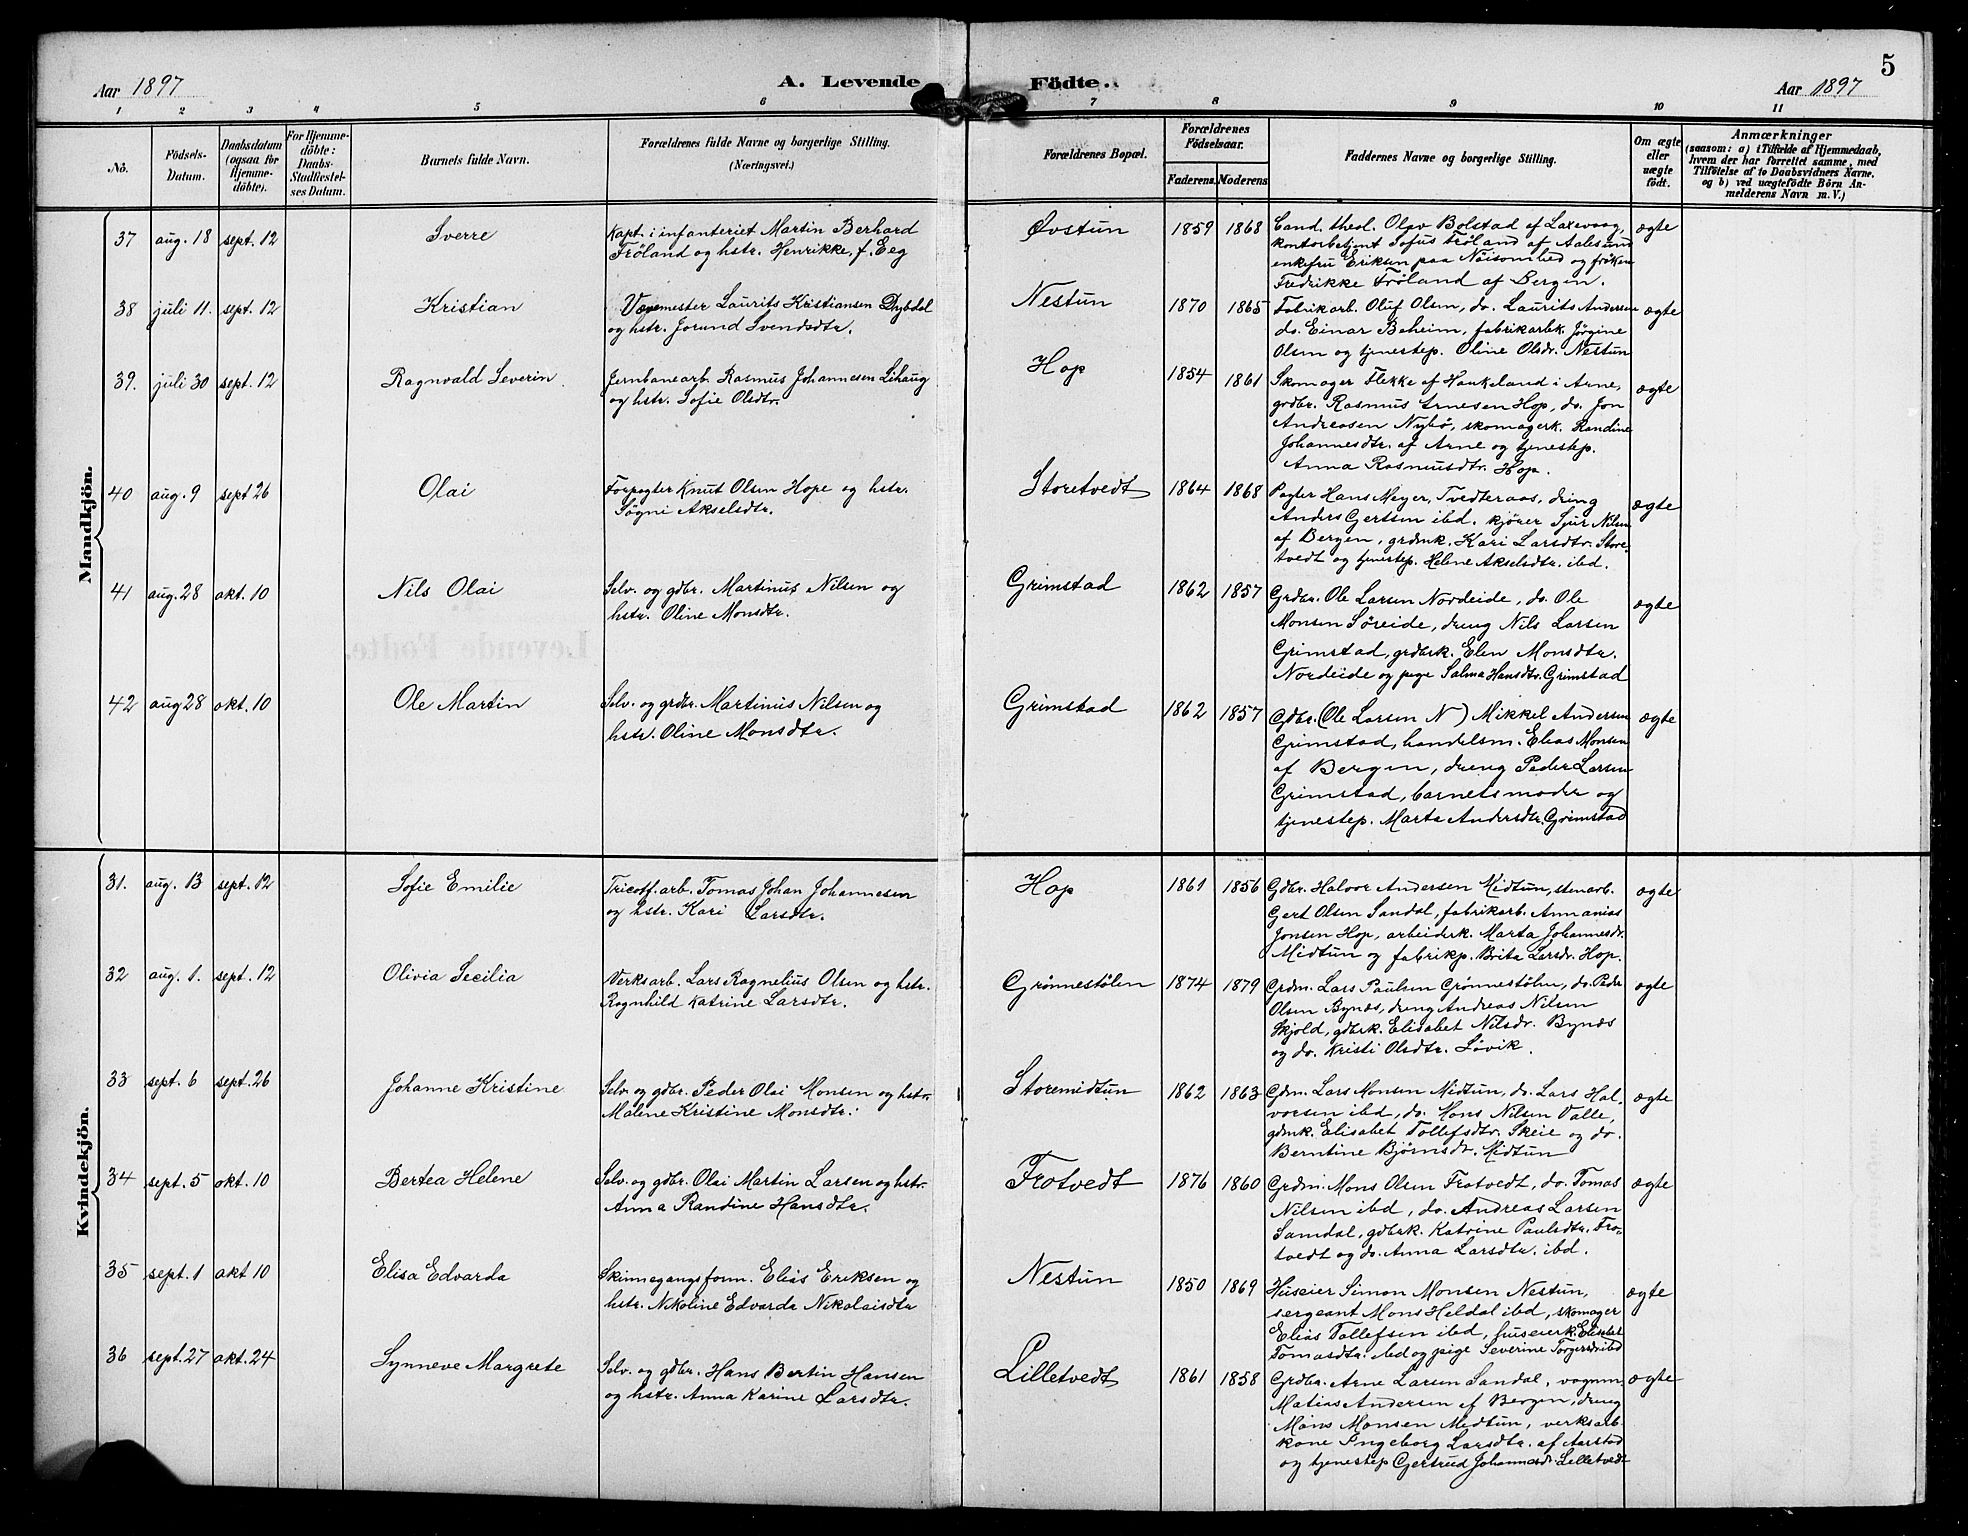 5
Aar 1897
A. Levende Födte.
Aar 1897
1 2 3 4 5 6 7 8 9 10 11
No.
Födsels-Datum.
Daabsdatum (ogsaa for Hjemme-döbte).
For Hjemme-döbte: Daabs-Stadfæstel-ses Datum.
Barnets fulde Navn.
Forældrenes fulde Navne og borgerlige Stilling.
(Næringsvei.)
Forældrenes Bopæl.
Forældrenes Födselsaar.
Faderens. Moderens
Faddernes Navne og borgerlige Stilling.
Om ægte eller uægte födt.
Anmærkninger
(saasom: a) i Tilfælde af Hjemmedaab,
hvem der har forrettet samme, med
Tilföielse af to Daabsvidners Navne.
og b) ved uægtefödte Börn An-
melderens Navn m. V.)
Mandkjön.
37 aug. 18 sept. 12 Sverre
Kapt. i infanteriet Martin Berhard
Fröland og hstr. Henrikke, f. Eeg
Øvstun 1859 1868
Cand. theol. Olav Bolstad af Laxevaag,
kontorbetjent Sofus Fröland af Aalesund
enkefru Eriksen paa Nöisomhed og fröken
Fredrikke Fröland af Bergen.
ægte
38 juli 11. sept. 12 Kristian
Vævemester Laurits Kristiansen Dybdal
og hstr. Jorund Svendsdtr.
Nestun 1870 1865
Fabrikarb. Oluf Olsen, do. Laurits Andersen
do. Einar Beheim, fabrikarbk. Jörgine
Olsen og tjenestep. Oline Olsdr. Nestun
ægte
39. juli 30 sept. 12 Ragnvald Severin
Jernbanearb. Rasmus Johannesen Lihaug
og hstr. Sofie Olsdtr.
Hop 1854 1861
Skomager Flekke af Haukeland i Arne,
grdbr. Rasmus Arnesen Hop, do. Jon
Andreasen Nybö, skomagerk. Randine
Johannesdtr. af Arne og tjenestep.
Anna Rasmusdtr. Hop.
ægte
40 aug. 9 sept 26 Olai
Forpagter Knut Olsen Hope og hstr.
Søgni Akselsdtr.
Storetvedt 1864 1868
Pagter Hans Meyer, Tvedteraas, dreng
Anders Gertsen ibd. kjörer Sjur Nilsen
af Bergen, grdmk. Kari Larsdtr. Store-
tvedt og tjenestep. Helene Akselsdtr. ibd.
ægte
41 aug. 28 okt. 10 Nils Olai
Selv. og gdbr. Martinus Nilsen og
hstr. Oline Monsdtr.
Grimstad 1862 1857
Grdbr. Ole Larsen Nordeide, do. Ole
Monsen Söreide, dreng Nils Larsen
Grimstad, grdbrk. Elen Monsdtr.
Nordeide og pige Salma Hansdtr. Grimstad
ægte
42 aug 28 okt. 10 Ole Martin
Selv. og grdbr. Martinus Nilsen og
hstr. Oline Monsdtr.
Grimstad 1862 1857
Gdbr. (Ole Larsen N) Mikkel Andersen
Grimstad, handelsm. Elias Monsen
af Bergen, dreng Peder Larsen
Grimstad, barnets moder og
tjenestep. Marta Andersdtr. Grimstad
ægte
Kvindekjön.
31. aug. 13 sept. 12 Sofie Emilie
Tricotf.arb. Tomas Johan Johannesen
og hstr. Kari Larsdtr.
Hop 1861 1856
Gdbr. Halvor Andersen Midtun, stenarb.
Gert Olsen Sandal, fabrikarb. Annanias
Jonsen Hop, arbeiderk. Marta Johannesdr.
Midtun og fabrikp. Brita Larsdr. Hop.
ægte
32 aug. 1. sept. 12 Olivia Secilia
Verksarb. Lars Ragnelius Olsen og hstr.
Ragnhild Katrine Larsdtr.
Grönnestölen 1874 1879
Grdm. Lars Paulsen Grönnestölen, do. Peder
Olsen Bynæs, dreng Andreas Nilsen
Skjold, gdbrk. Elisabet Nilsdr. Bynæs
og do. Kristi Olsdtr. Lövik.
ægte
33 sept. 6 sept. 26 Johanne Kristine
Selv. og gdbr. Peder Olai Monsen og hstr.
Malene Kristine Monsdtr.
Storemidtun 1862 1863
Gdm. Lars Monsen Midtun, do. Lars Hal-
vorsen ibd, do. Mons Nilsen Valle,
gdmk. Elisabet Tollefsdtr. Skeie og do.
Berntine Björnsdr. Midtun
ægte
34 sept. 5 okt. 10 Bertea Helene
Selv. og gdbr. Olai Martin Larsen og hstr.
Anna Randine Hansdtr.
Frotvedt 1876 1860
Grdm. Mons Olsen Frotvedt, do. Tomas
Nilsen ibd, do. Andreas Larsen
Samdal, gdbrk. Katrine Paulsdtr. Fro-
tvedt og do. Anna Larsdtr. ibd.
ægte
35 sept. 1 okt 10 Elisa Edvarda
Skinnegangsform. Elias Eriksen og
hstr. Nikoline Edvarda Nikolaisdtr
Nestun 1850 1869
Huseier Simon Monsen Nestun,
sergeant Mons Heldal ibd, skomager
Elias Tollefsen ibd, huseierk. Elisabet
Tomasdtr. ibd og pige Severine Torgersdr ibd
ægte
36 sept. 27 okt. 24 Synneve Margrete
Selv. og gdbr. Hans Bertin Hansen
og hstr. Anna Karine Larsdtr.
Lilletvedt 1861 1858
Grdbr. Arne Larsen Sandal, vognm.
Matias Andersen af Bergen, dreng
Mons Monsen Midtun, verksarb.
kone Ingeborg Larsdtr. af Aarstad
og tjenestep Gertrud Johannesdr. Lilletvedt
ægte